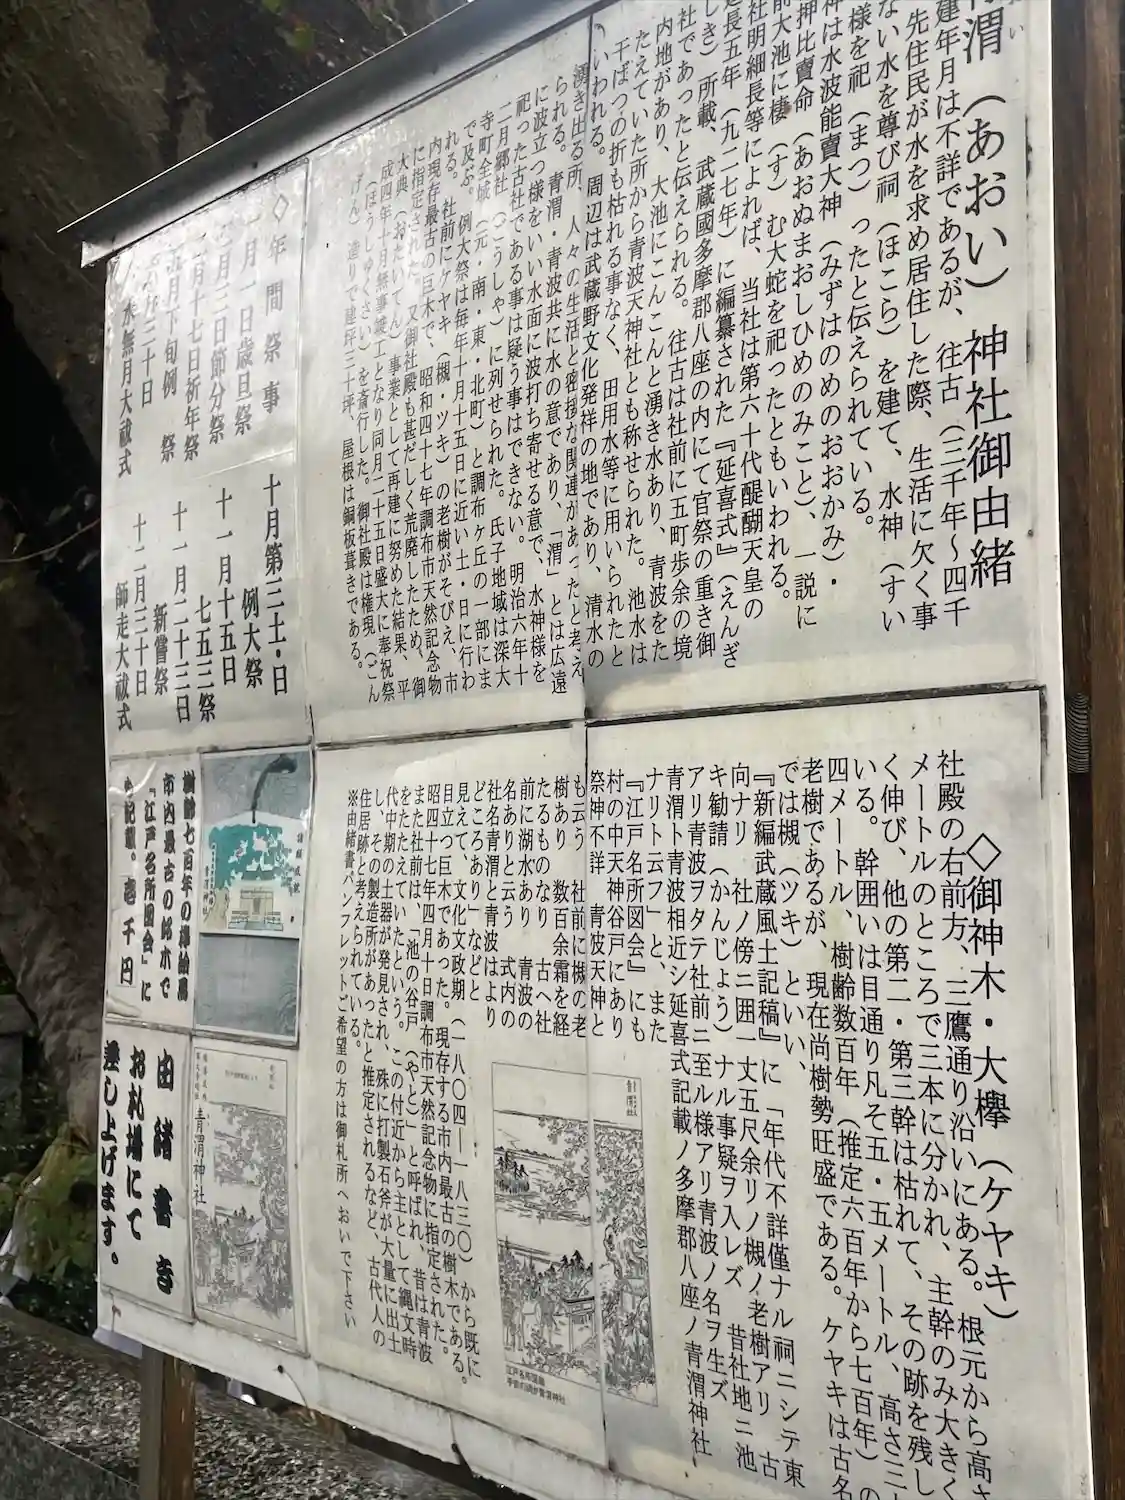 青渭 (あおい) 神社御由緒
建年月は不詳であるが、往古(三千年~四千
先住民が水を求め居住した際、生活に欠く事
ない水を尊び祠(ほこら)を建て、水神(すい
様を祀(まつ)ったと伝えられている。
神は水波能賣大神(みずはのめのおおかみ)・
押比賣命(あおぬまおしひめのみこと)、一説に
前大池に棲(す)む大蛇を祀ったともいわれる。
社明細長等によれば、当社は第六十代醍醐天皇の
延長五年(九二七年)に編纂された『延喜式』(えんぎ
しき)所載、武蔵國多摩郡八座の内にて官祭の重き御
社であったと伝えられる。往古は社前に五町歩余の境
内地があり、大池にこんこんと湧き水あり、青波をた
たえていた所から青波天神社とも称せられた。池水は
干ばつの折も枯れる事なく、田用水等に用いられたと
いわれる。周辺は武蔵野文化発祥の地であり、清水の
湧き出る所、人々の生活と密接な関連があったと考え
られる。青渭・青波共に水の意であり、「渭」とは広遠
に波立つ様をいい水面に波打ち寄せる意で、水神様を
祀った古社である事は疑う事はできない。明治六年十
二月郷社(ごうしゃ)に列せられた。氏子地域は深大
寺町全域(元・南・東・北町)と調布ヶ丘の一部にま
で及ぶ。例大祭は毎年十月十五日に近い土・日に行わ
れる。社前にケヤキ(槻・ツキ)の老樹がそびえ、市
内現存最古の巨木で、昭和四十七年調布市天然記念物
に指定された。又御社殿も甚だしく荒廃したため、御
大典(おたいてん)事業として再建に努めた結果、平
成四年十月無事竣工となり同月二十五日盛大に奉祝祭
(ほうしゅくさい)を斎行した。御社殿は権現(ごん
げん)造りで建坪三十坪、屋根は銅板葺きである。
◇年間祭事
一月一日歳旦祭
二月三日節分祭
二月十七日祈年祭
五月下旬例 祭
六月三十日
水無月大祓式
十月第三土・日
例大祭
十一月十五日
七五三祭
十一月二十三日
新嘗祭
十二月三十日
師走大祓式
◇御神木・大欅(ケヤキ)
社殿の右前方、三鷹通り沿いにある。根元から高さ
メートルのところで三本に分かれ、主幹のみ大きく
く伸び、他の第二・第三幹は枯れて、その跡を残し
いる。幹囲いは目通り凡そ五・五メートル、高さ三十
四メートル、樹齢数百年(推定六百年から七百年)の
老樹であるが、現在尚樹勢旺盛である。ケヤキは古名
では槻(ツキ)といい、
『新編武蔵風土記稿』に「年代不詳僅ナル祠ニシテ東
向ナリ 社ノ傍ニ囲一丈五尺余リノ槻ノ老樹アリ 古
キ勧請(かんじょう)ナル事疑ヲ入レズ 昔社地ニ池
アリ青波ヲタテ社前ニ至ル様アリ青波ノ名ヲ生ズ
青渭ト青波相近シ延喜式記載ノ多摩郡八座ノ青渭神社
ナリト云フ」と、また
『江戸名所図会』にも
村の中天神谷戸にあり
祭神不詳 青波天神と
も云う 社前に槻の老
樹あり 数百余霜を経
たるものなり 古へ社
前に湖水あり 青波の
名ありと云う 式内の
社名青渭と青波はより
どころあり」などと
見えて、文化文政期(一八〇四―一八三〇)から既に
目立つ巨木であった。現存する市内最古の樹木である。
昭四十七年四月十日調布市天然記念物に指定された。
また社前は、「池の谷戸(やと)」と呼ばれ、昔は青波
をたたえていたという。この付近から主として縄文時
代中期の土器が発見され、殊に打製石斧が大量に出土
し、その製造所があったと推定されるなど、古代人の
住居跡と考えられている。
※由緒書パンフレットご希望の方は御札所へおいで下さい
江戸名所図会
樹齢七百年の擇絵馬
市内最古の铭木で
「江戸名所図会」に
も記載。壱千円
諸願成就
青渭神社
青渭神社
由緒書き
お札場にて
差し上げます。